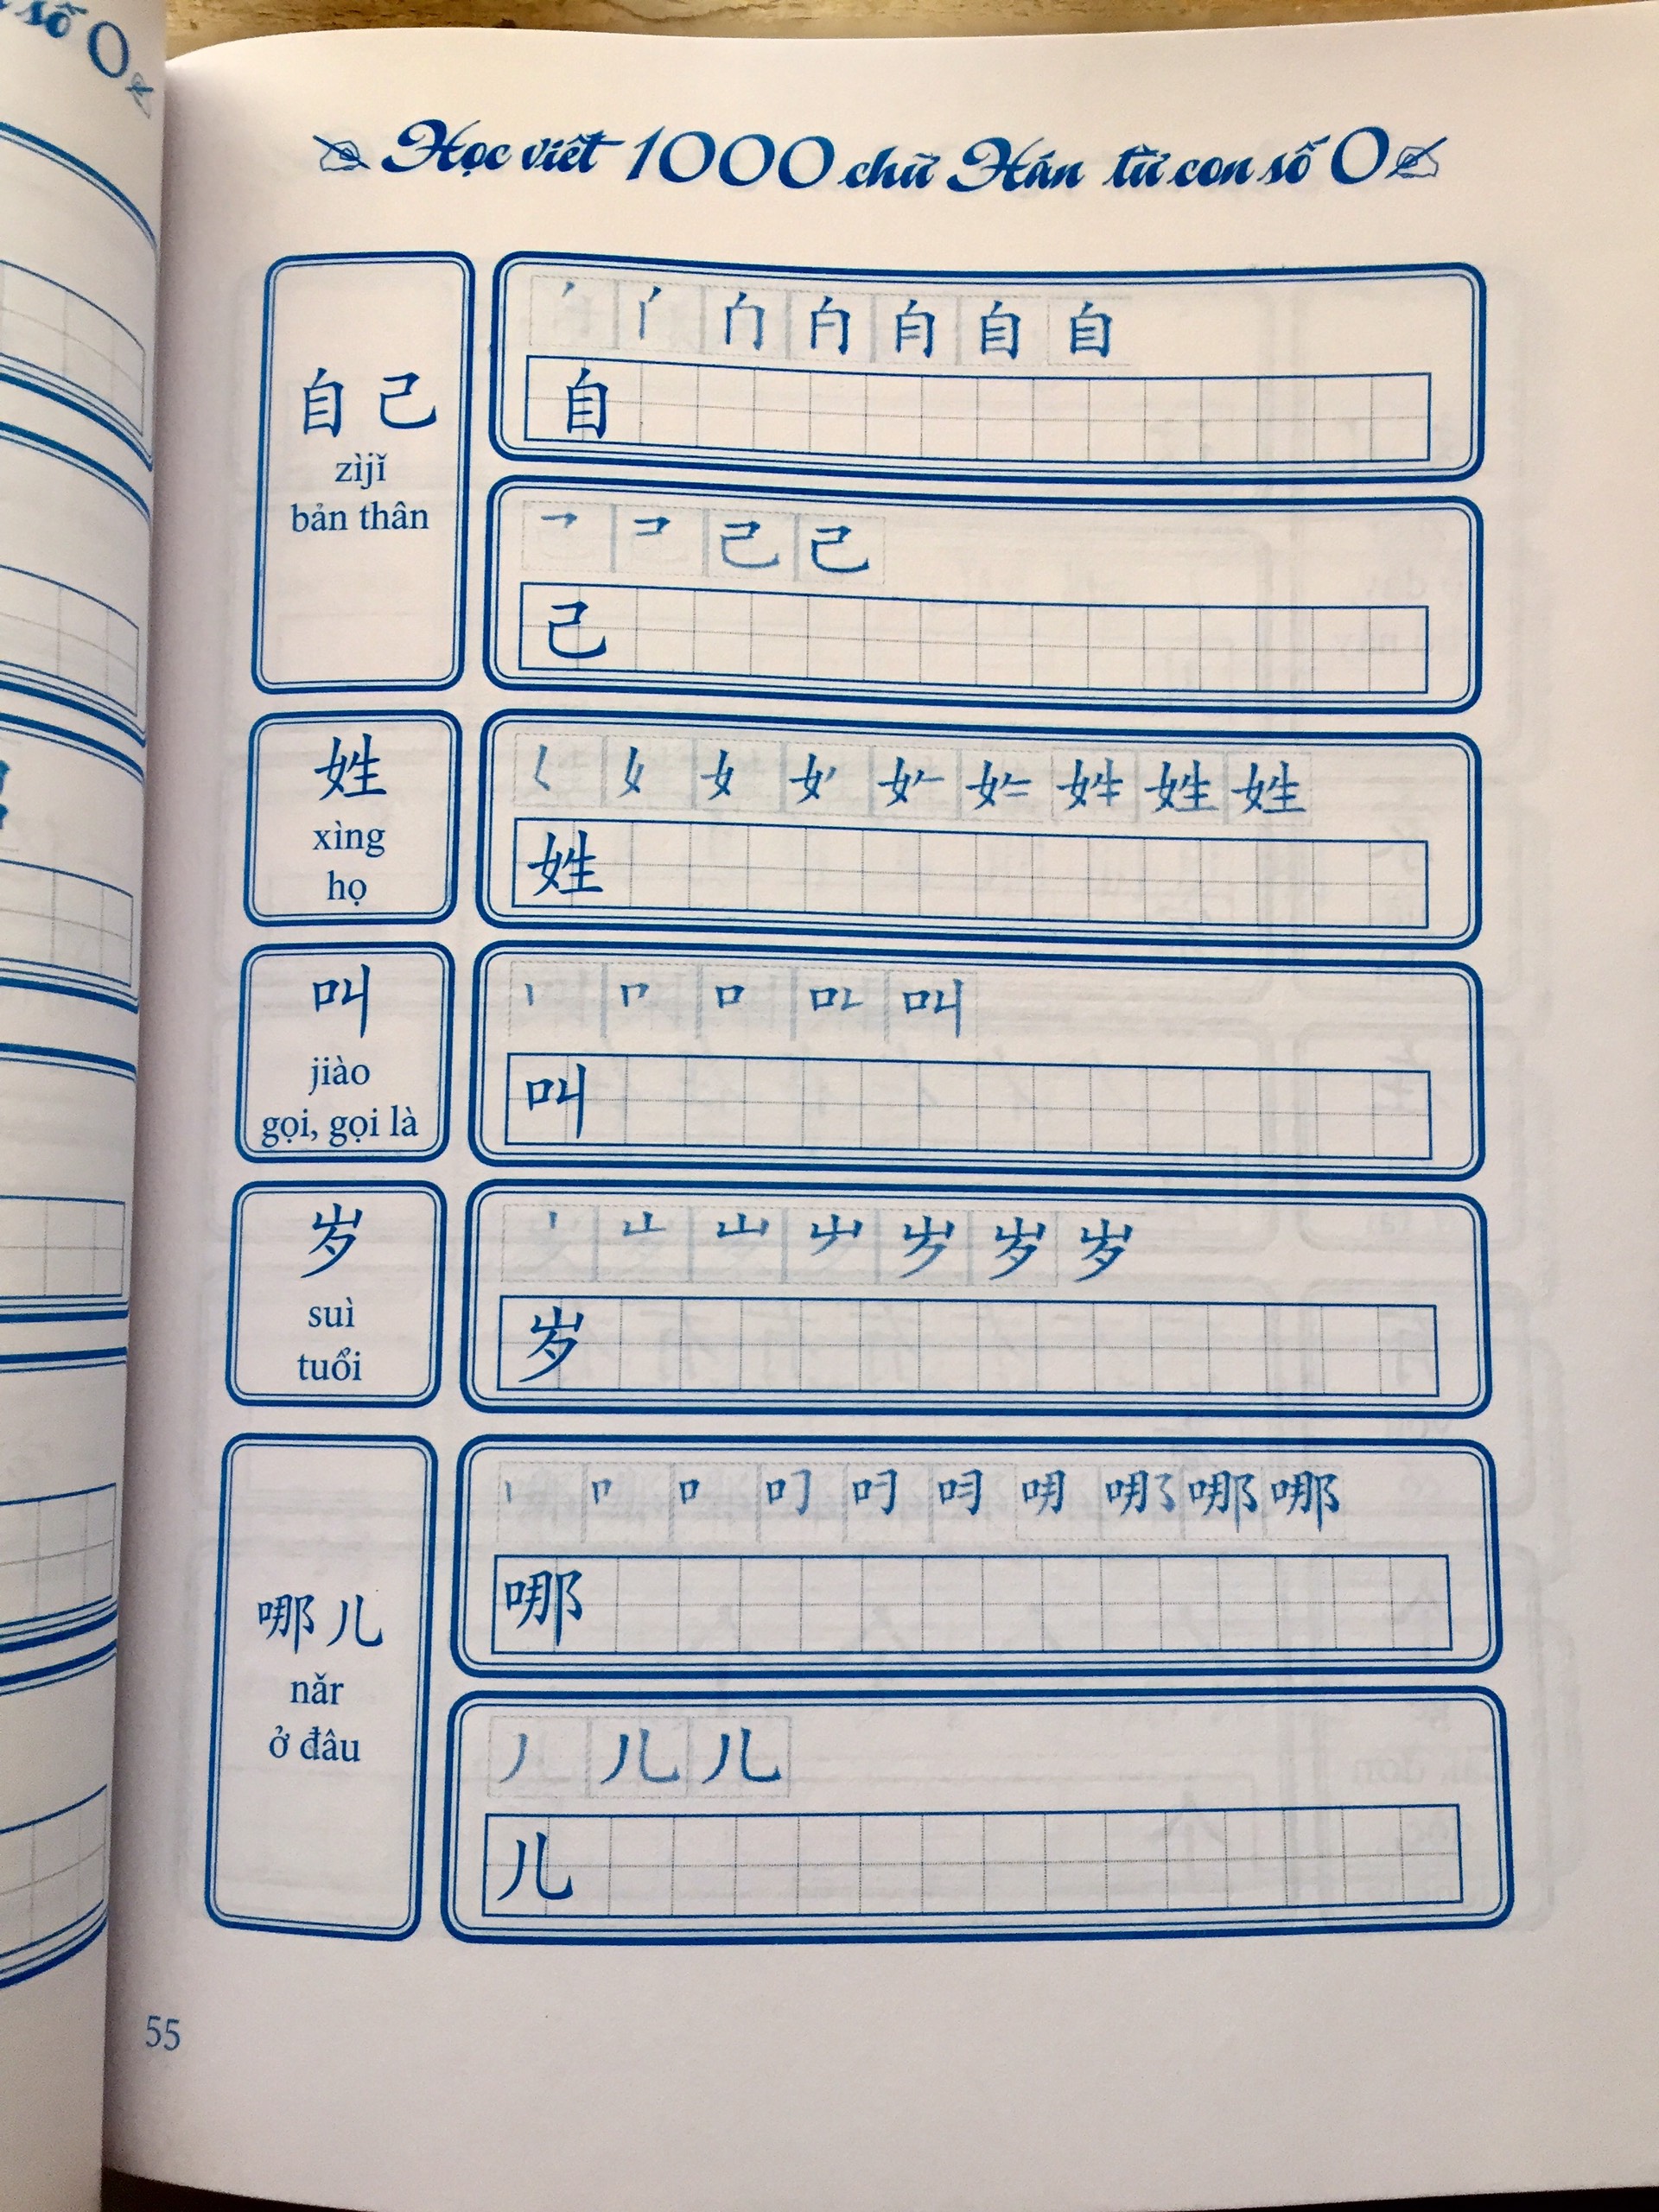 số 0
Học viết 1000 chữ Hán từ con số 0
自己
zìjǐ
bản thân
自 自
自
己 己
己
姓
xìng
họ
姓 姓
姓
叫
jiào
gọi, gọi là
叫
叫
岁
suì
tuổi
丨 山 岁 岁
岁
哪儿
nǎr
ở đâu
丨 口 叨 哪 哪
哪
丿 儿 儿
儿
55